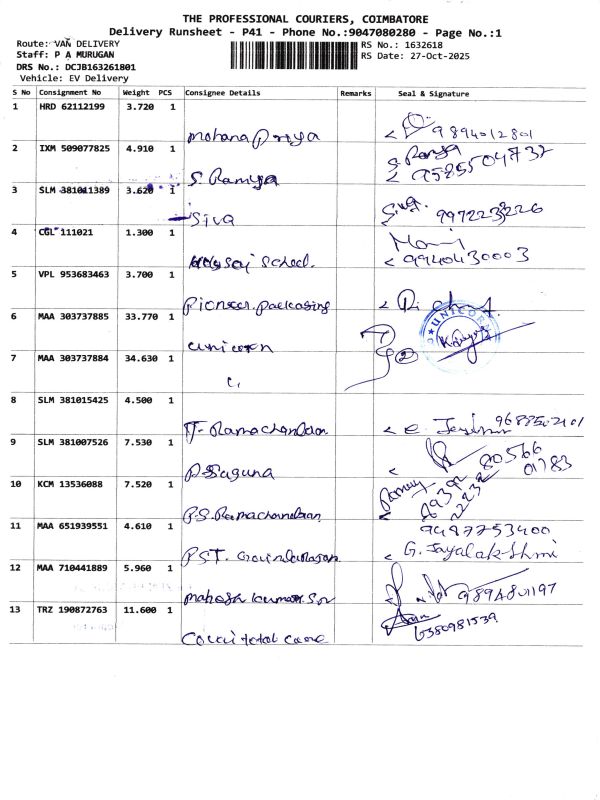 THE PROFESSIONAL COURIERS, COIMBATORE
Delivery Runsheet - P41 - Phone No.:9047080280 - Page No.:1
Route: VAN DELIVERY
RS No.: 1632618
Staff: P A MURUGAN
RS Date: 27-Oct-2025
DRS No.: DCJB163261801
Vehicle: EV Delivery
S No Consignment No Weight PCS Consignee Details Remarks Seal & Signature
1 HRD 62112199 3.720 1
Mohana Priya 9894012801
2 IXM 509077825 4.910 1
S. Ramya S. Ramya 9585504737
3 SLM 381011389 3.620 1
Siva Siva 997223226
4 CGL 111021 1.300 1
School. Mani 9940430003
5 VPL 953683463 3.700 1
Pioneer. Packasing
6 MAA 303737885 33.770 1
Unicorn UNICORN
7 MAA 303737884 34.630 1 2
8 SLM 381015425 4.500 1
Ramachandran
9 SLM 381007526 7.530 1
P. Saguna 80566 01783
10 KCM 13536088 7.520 1
P.S. Ramachandran
11 MAA 651939551 4.610 1 9487753400
PST. G. Jayalakshmi
12 MAA 710441889 5.960 1
Mahesh Kumar. S.V 9894801197
13 TRZ 190872763 11.600 1
Covai total care 6380981539